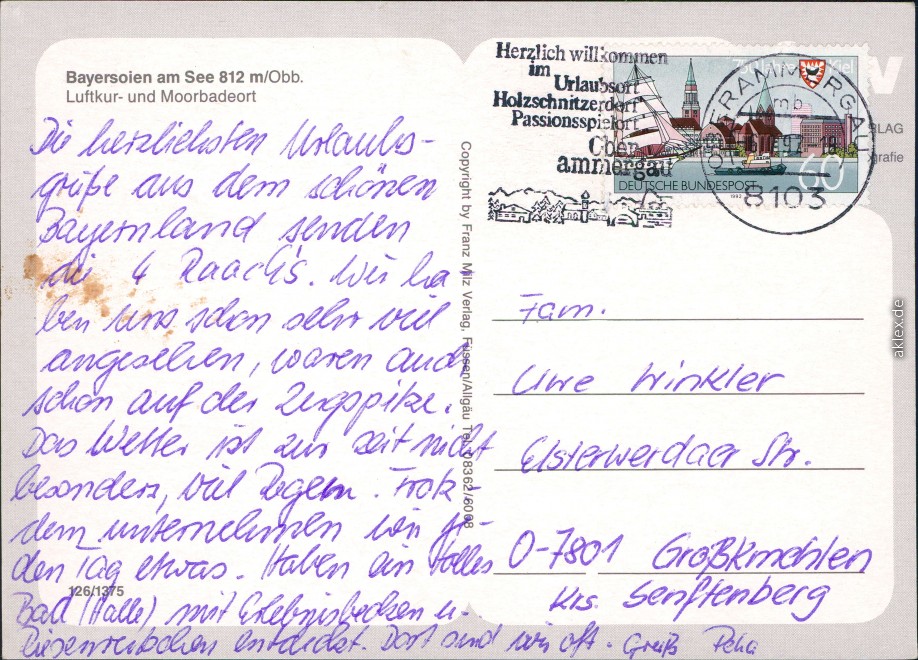 Bayersoien am See 812 m/Obb.
Luftkur- und Moorbadeort
Die herzlichsten Urlaubs-
grüße aus dem schönen
Bayernland senden
die 4 Raack's. Wir ha
ben uns schon sehr viel
angesehen, waren auch
schon auf der Zugspitze.
Das Wetter ist zur Zeit nicht
besonders, viel Regen. Trotz-
dem unternehmen wir je-
den Tag etwas. Haben ein tolles
126/1375
Bad (Halle) mit Erlebnisbecken u.
Riesenrutschen entdeckt. Dort sind wir oft. Gruß
Copyright by Franz Milz Verlag, Füssen/Allgäu Tel. 08362/6008
Herzlich willkommen
im
Urlaubsort
Holzschnitzerdorf
Passionsspielort
Ober
ammergau
750 Jahre Kiel
60
DEUTSCHE BUNDESPOST
1992
OBERAMMERGAU
mb
8103
RLAG
grafie
Fam.
Uwe Winkler
Elsterwerdaer Str.
O-7801 Großkmehlen
Krs. Senftenberg
aklex.de